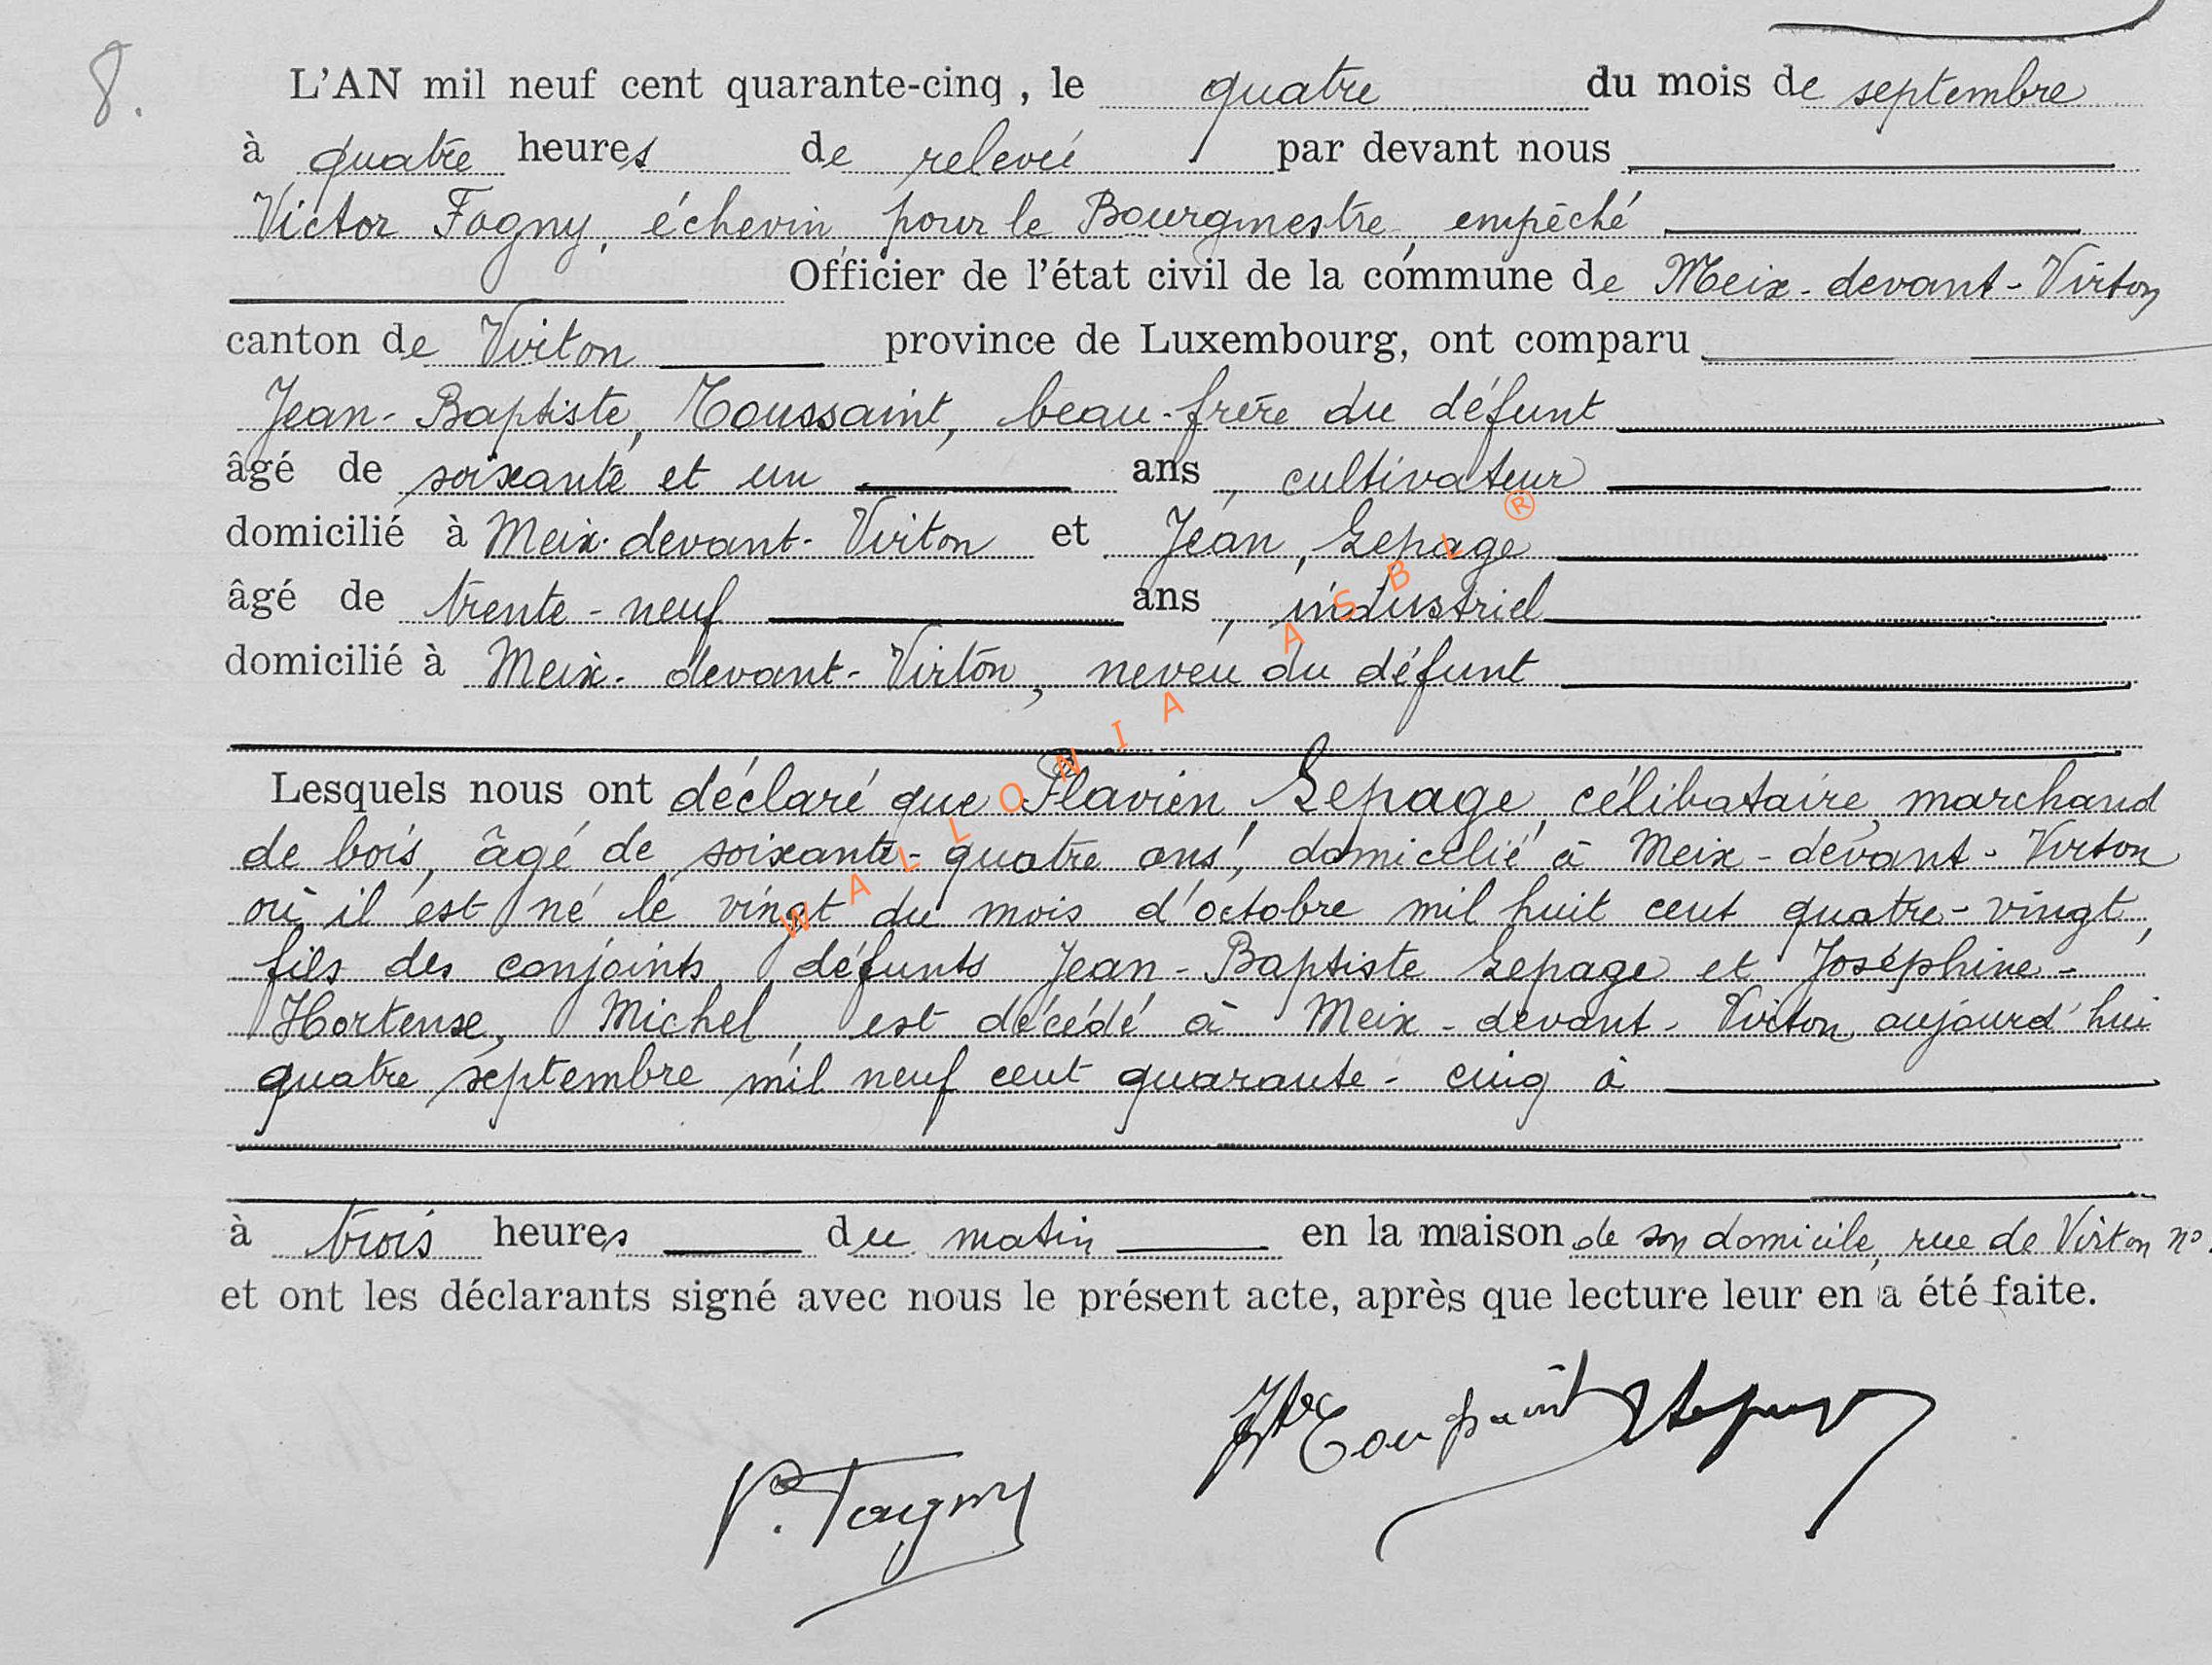 8.
L'AN mil neuf cent quarante-cinq, le quatre du mois de septembre
à quatre heures de relevée par devant nous
Victor Fagny, échevin, pour le Bourgmestre, empêché
Officier de l'état civil de la commune de Meix-devant-Virton
canton de Virton province de Luxembourg, ont comparu
Jean-Baptiste, Toussaint, beau-frère du défunt
âgé de soixante et un ans, cultivateur
domicilié à Meix-devant-Virton et Jean, Lepage
âgé de trente-neuf ans, industriel
domicilié à Meix-devant-Virton, neveu du défunt
Lesquels nous ont déclaré que Flavien, Lepage, célibataire, marchand
de bois, âgé de soixante-quatre ans, domicilié à Meix-devant-Virton
où il est né le vingt du mois d'octobre mil huit cent quatre-vingt,
fils des conjoints, défunts Jean-Baptiste Lepage et Joséphine-
Hortense, Michel, est décédé à Meix-devant-Virton, aujourd'hui
quatre septembre mil neuf cent quarante-cinq à
à trois heures du matin en la maison de son domicile, rue de Virton n°
et ont les déclarants signé avec nous le présent acte, après que lecture leur en a été faite.
Jbte Toussaint JLepage
V. Fagny
WALLONIA ASBL ®